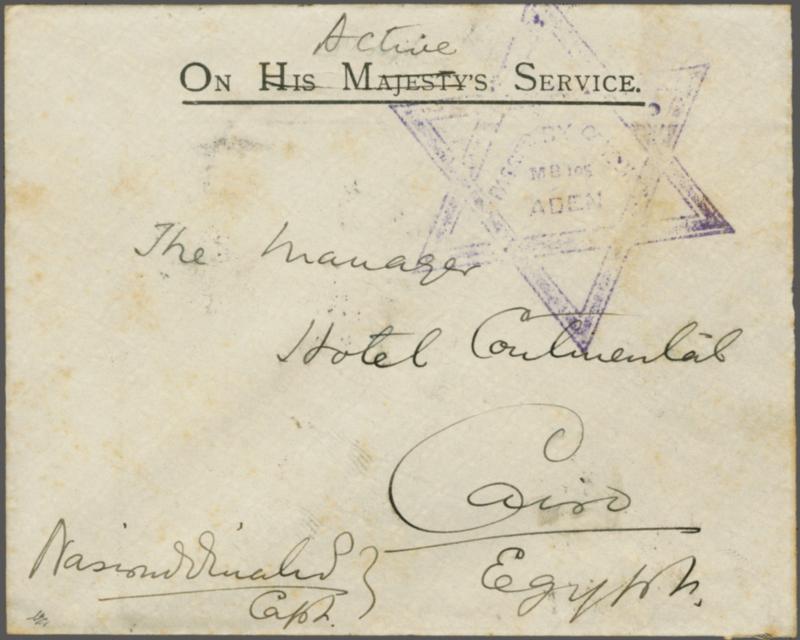 Active
ON HIS MAJESTY'S SERVICE.
PASSED BY
MB 105
ADEN
The Manager
Hotel Continental
Cairo
Egypt.
Capt.